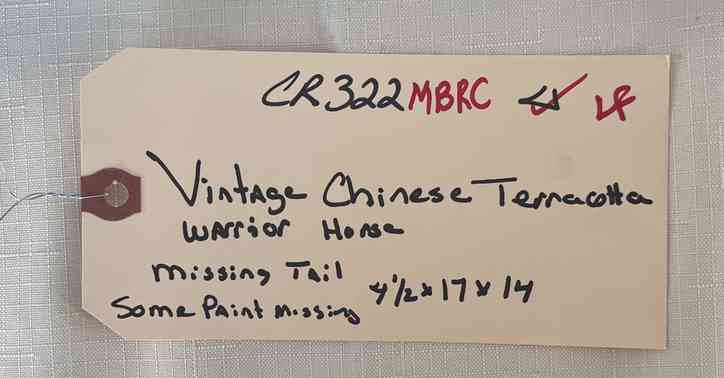 CR322MBRC LF
Vintage Chinese Terracotta
Warrior Horse
Missing Tail
Some Paint Missing 4 1/2 x 17 x 14